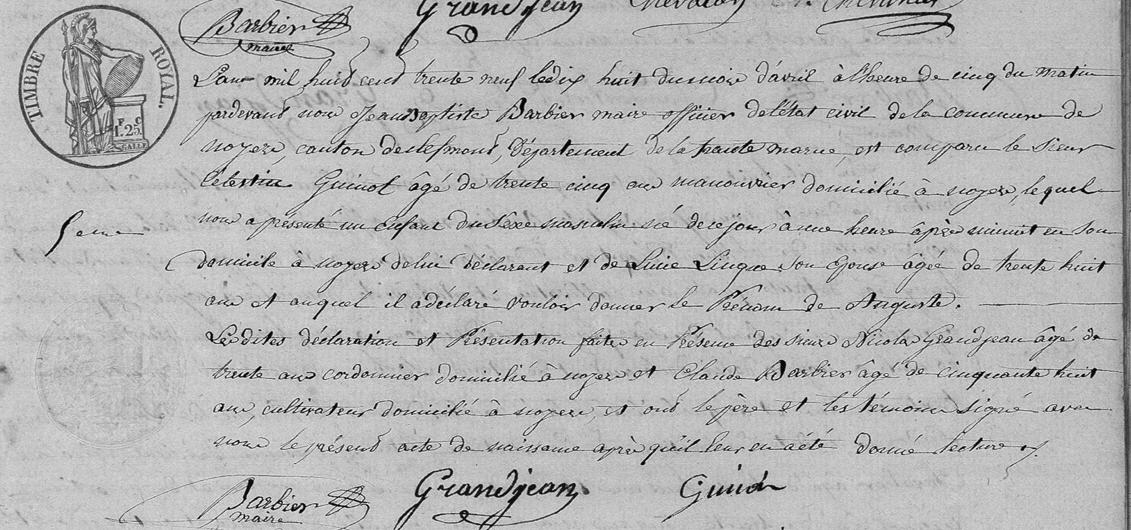 Barbier Grandjean
maire
TIMBRE ROYAL.
F. C
1.25.
L'an mil huit cent trente neuf le dix huit du mois d'avril à l'heure de cinq du matin
pardevant nous Jean Baptiste Barbier maire officier de l'état civil de la commune de
noyers, canton de clefmont, Département de la haute marne, est comparu le sieur
Célestin Guinot âgé de trente cinq ans manouvrier domicilié à noyers, lequel
nous a présenté un Enfant du sexe masculin né de ce jour à une heure après minuit en son
5eme
domicile à noyers de lui déclarant et de Lucie son Epouse âgée de trente huit
ans et auquel il a déclaré vouloir donner le Prénom de Auguste.
Lesdites déclaration et Présentation faite en Présence des sieurs Nicolas Grandjean âgé de
trente ans cordonnier domicilié à noyers et Claude Barbier âgé de cinquante huit
ans, cultivateur domicilié à noyers, et ont le père et les témoins signé avec
nous le présent acte de naissance après qu'il leur en a été donné lecture
Barbier Grandjean Guinot
maire